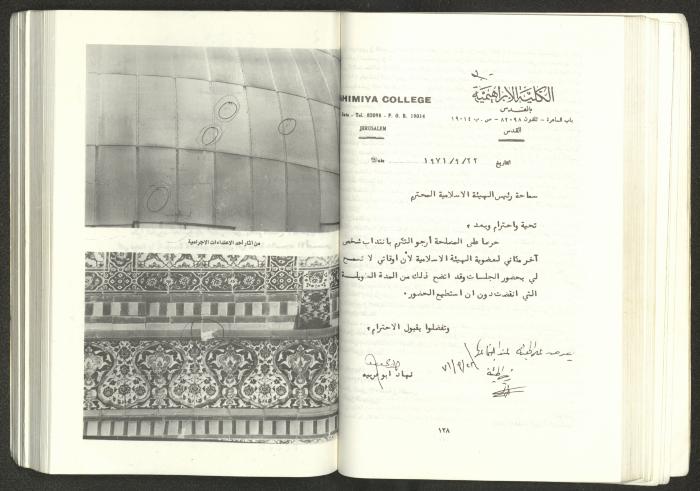 من آثار أحد الاعتداءات الاجرامية
HIMIYA COLLEGE
الكلية الابراهيمية
بالقدس
Gate - Tel. 82098 - P. O. B. 19014
باب الساهرة - تلفون ٨٢٠٩٨ - ص. ب ١٩٠١٤
JERUSALEM
القدس
Date
١٩٧١/٩/٢٢
التاريخ
سماحة رئيس الهيئة الاسلامية المحترم
تحية واحترام وبعد ،
حرصا على المصلحة أرجو التكرم بانتداب شخص
آخر مكاني لعضوية الهيئة الاسلامية لأن أوقاتي لا تسمح
لي بحضور الجلسات وقد اتضح ذلك من المدة الطويلة
التي انقضت دون ان استطيع الحضور .
وتفضلوا بقبول الاحترام ،
نهاد ابو غربيه
١٢٨